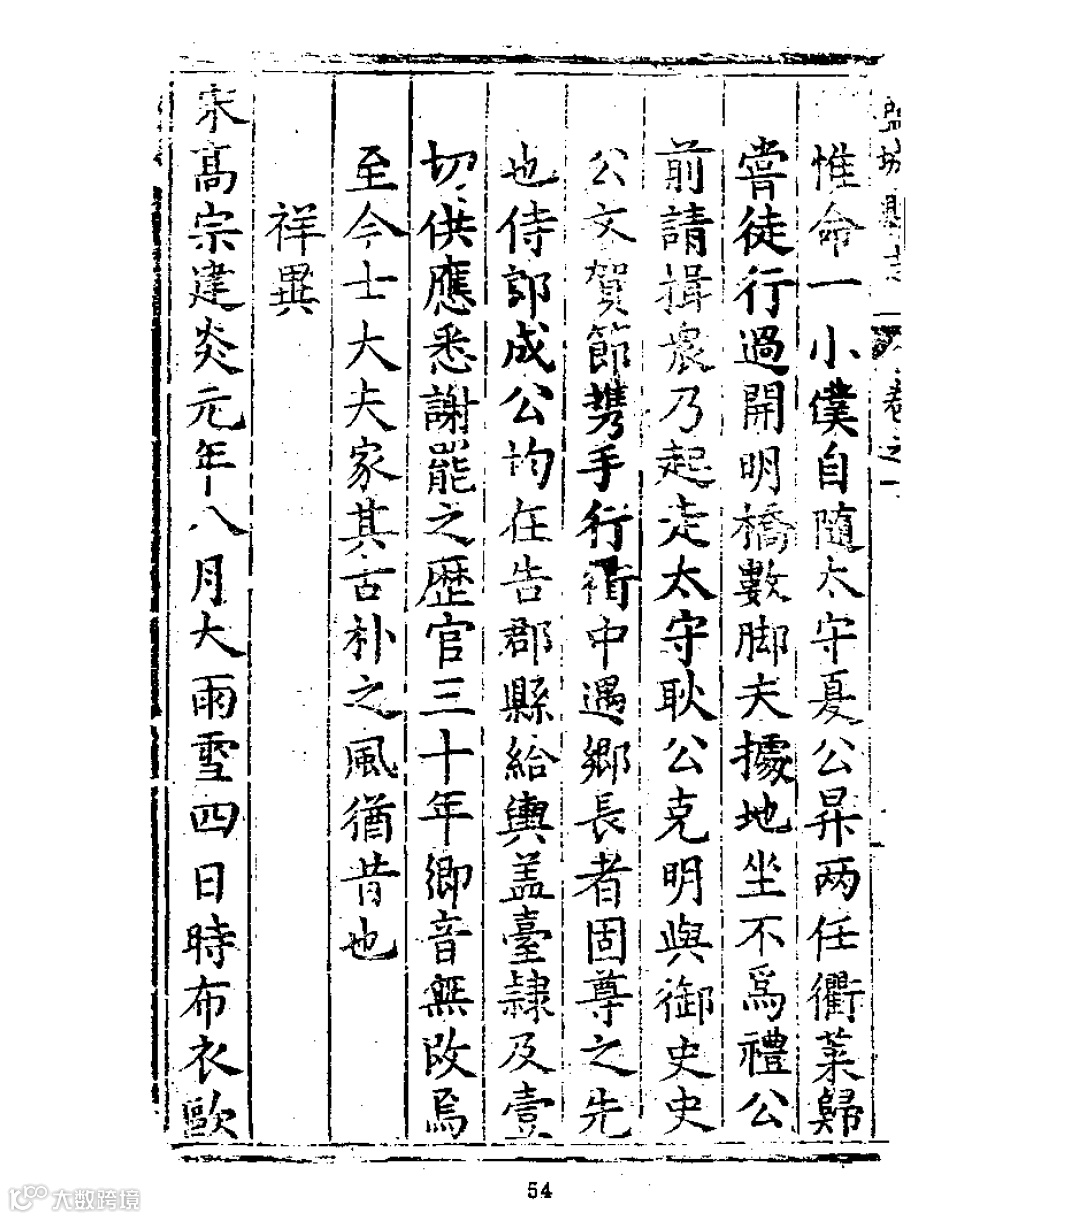 盐城縣志 卷之一
惟命一小僕自随太守夏公昇两任衢萊歸
嘗徒行過開明橋數脚夫據地坐不為禮公
前請揖衆乃起走太守耿公克明與御史史
公文賀節携手行衢中遇鄉長者固尊之先
也侍郎成公均在告郡縣給輿盖臺隷及壹
切供應悉謝罷之歴官三十年鄉音無改焉
至今士大夫家其古朴之風猶昔也
祥異
宋高宗建炎元年八月大雨雪四日時布衣歐
54
大数跨境